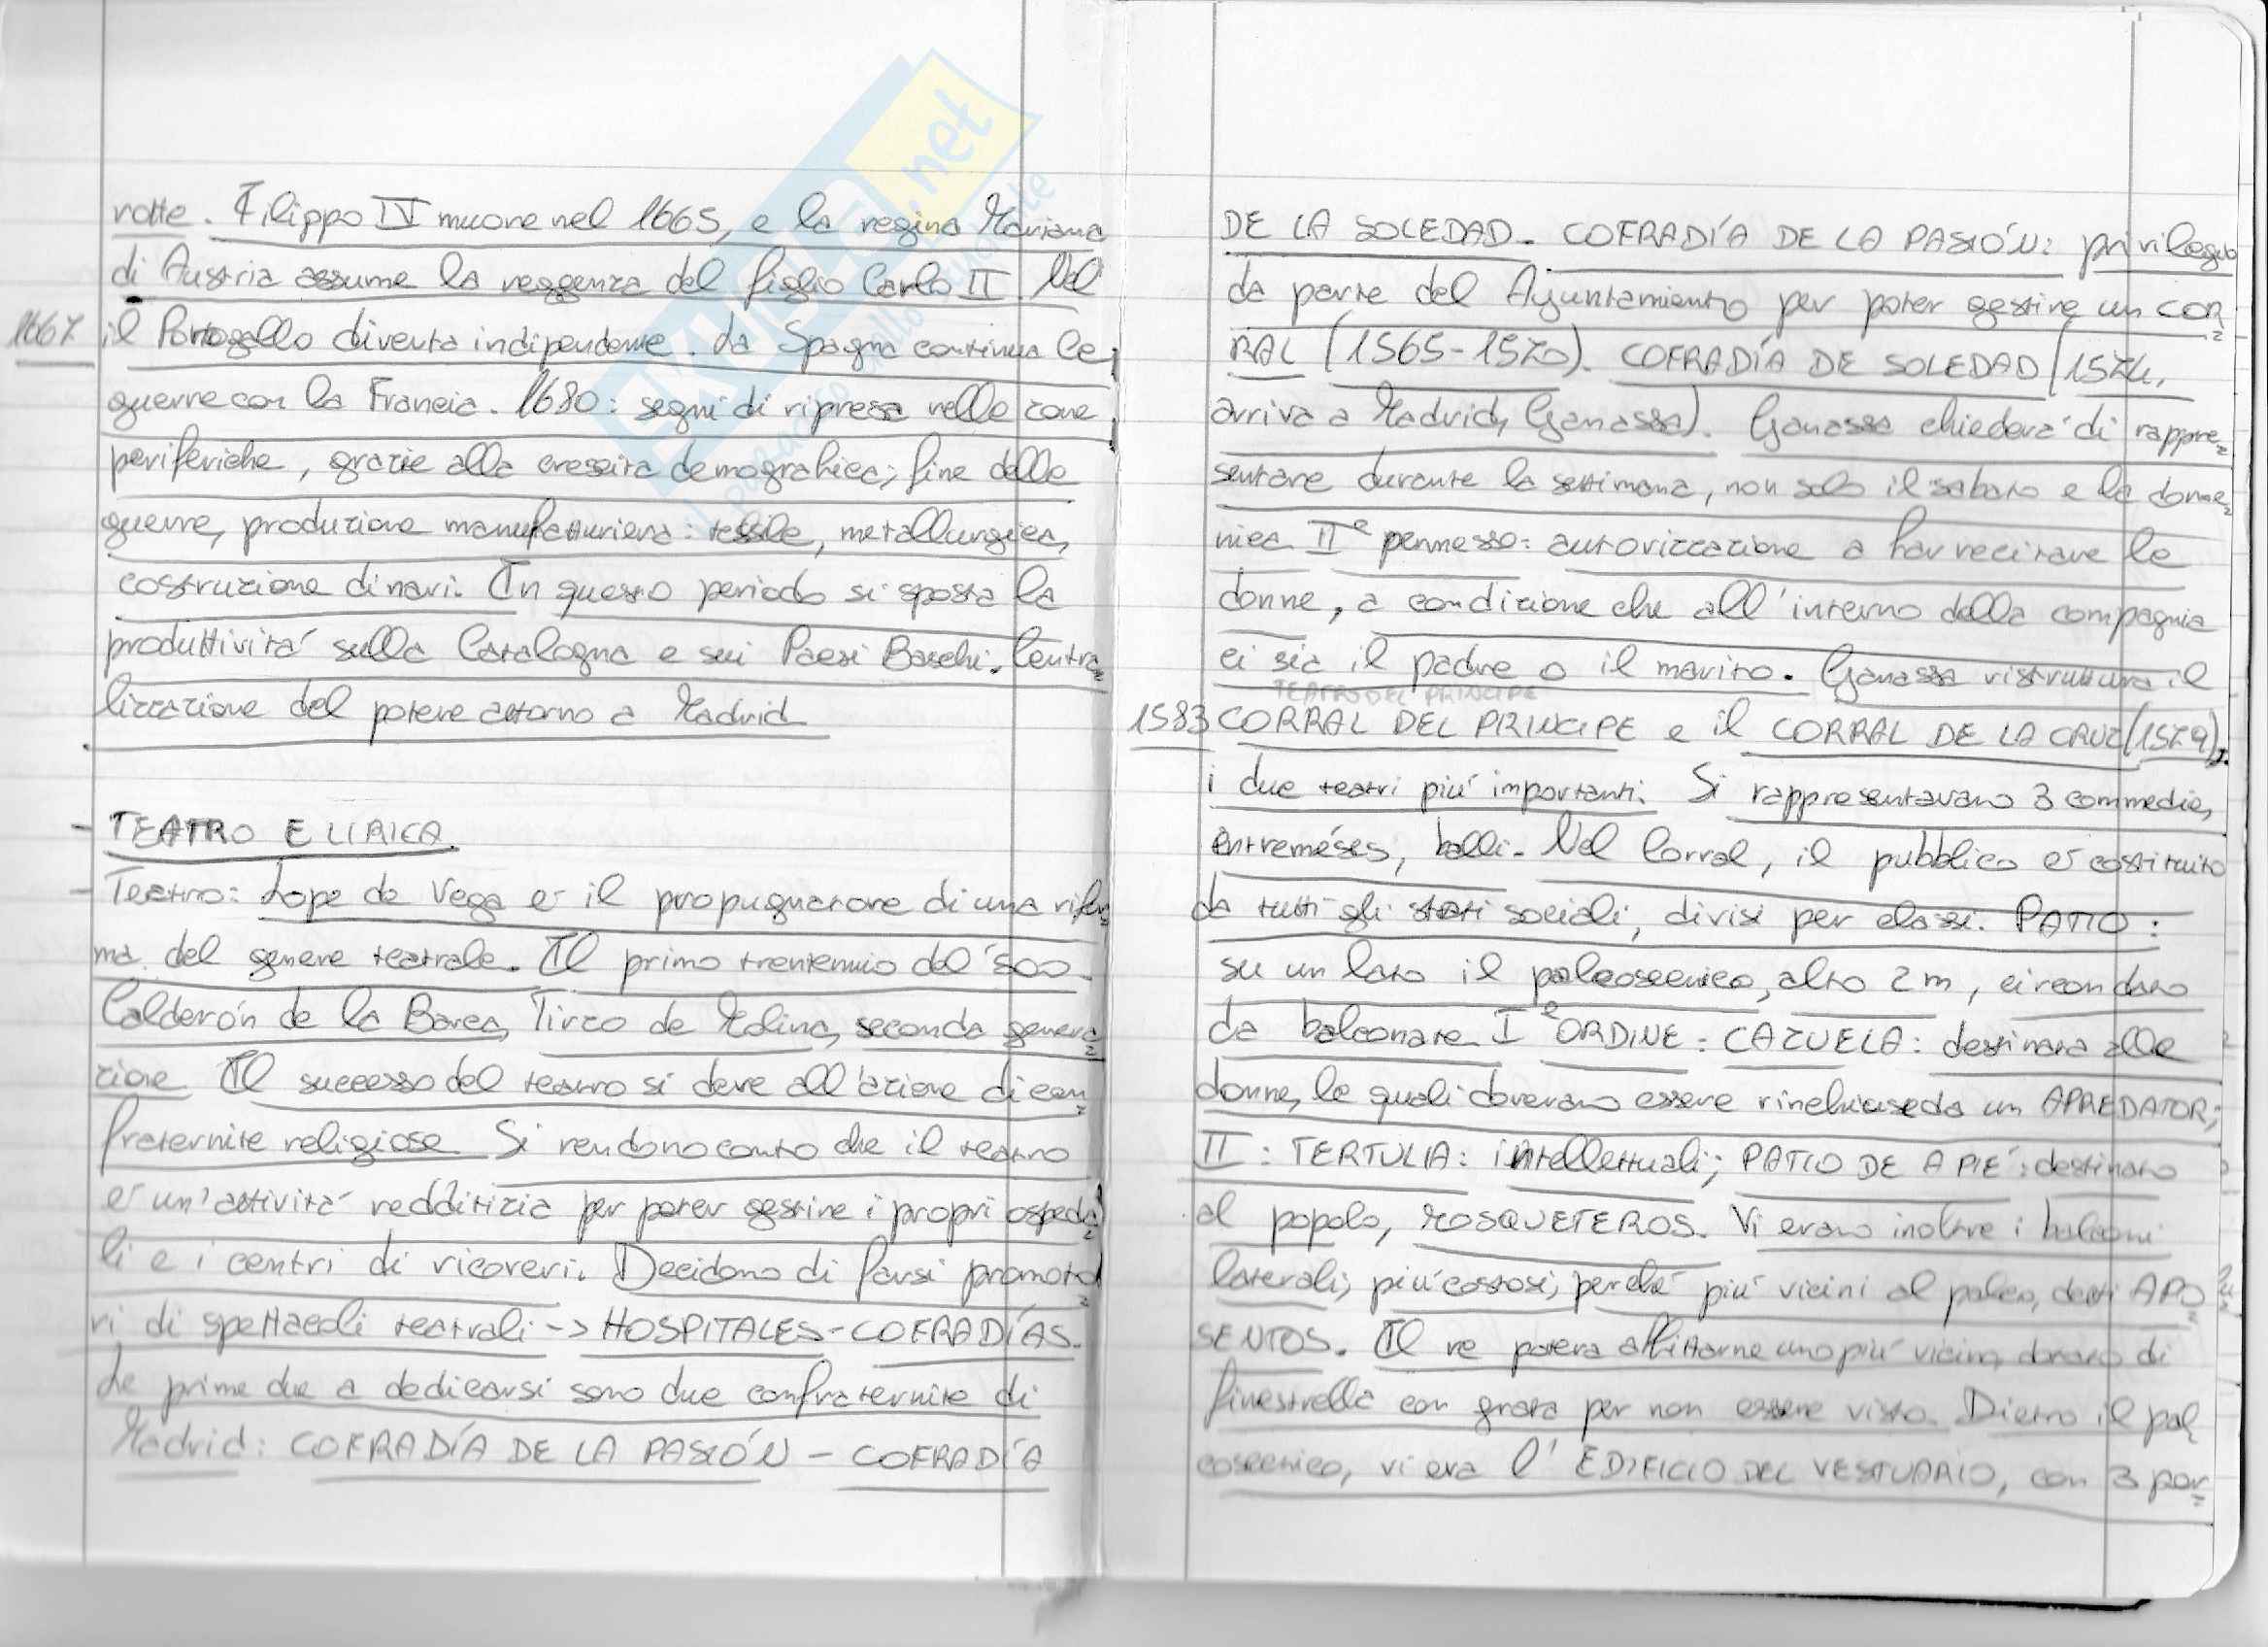 rotte. Filippo IV muore nel 1665, e la regina Mariana
di Austria assume la reggenza del figlio Carlo II. Nel
1667 il Portogallo diventa indipendente. La Spagna continua le
guerre con la Francia. 1680: segni di ripresa nelle zone
periferiche, grazie alla crescita demografica; fine delle
guerre, produzione manufatturiera: tessile, metallurgica,
costruzione di navi. In questo periodo si sposta la
produttività sulla Catalogna e sui Paesi Baschi. Centra=
lizzazione del potere attorno a Madrid
- TEATRO E LIRICA.
- Teatro: Lope de Vega è il propugnatore di una rifor=
ma del genere teatrale. Il primo trentennio del '500.
Calderón de la Barca, Tirzo de Molina, seconda genera=
zione. Il successo del teatro si deve all'azione di con=
fraternite religiose. Si rendono conto che il teatro
è un'attività redditizia per poter gestire i propri ospeda=
li e i centri di ricoveri. Decidono di farsi promoto=
ri di spettacoli teatrali -> HOSPITALES-COFRADÍAS.
Le prime due a dedicarsi sono due confraternite di
Madrid: COFRADÍA DE LA PASIÓN - COFRADÍA
DE LA SOLEDAD. COFRADÍA DE LA PASIÓN: privilegio
da parte del Ayuntamiento per poter gestire un COR=
RAL (1565-1570). COFRADÍA DE SOLEDAD (1574,
arriva a Madrid, Ganassa). Ganassa chiederà di rappre=
sentare durante la settimana, non solo il sabato e la dome=
nica II° permesso: autorizzazione a far recitare le
donne, a condizione che all'interno della compagnia
ci sia il padre o il marito. Ganassa ristruttura il
TEATRO DEL PRINCIPE
1583 CORRAL DEL PRINCIPE e il CORRAL DE LA CRUZ (1579),
i due teatri più importanti. Si rappresentavano 3 commedie,
entremeses, balli. Nel Corral, il pubblico è costituito
da tutti gli stati sociali, divisi per classi. PATIO:
su un lato il palcoscenico, alto 2 m, circondato
da balconate I° ORDINE: CAZUELA: destinata alle
donne, le quali dovevano essere rinchiuse da un APREDATOR;
II: TERTULIA: intellettuali; PATIO DE A PIÉ: destinato
al popolo, MOSQUETEROS. Vi erano inoltre i balconi
laterali, più costosi, perché più vicini al palco, detti APO=
SENTOS. Il re poteva affittarne uno più vicino, dotato di
finestrella con grata per non essere visto. Dietro il pal=
coscenico, vi era l'EDIFICIO DEL VESTUARIO, con 3 por=